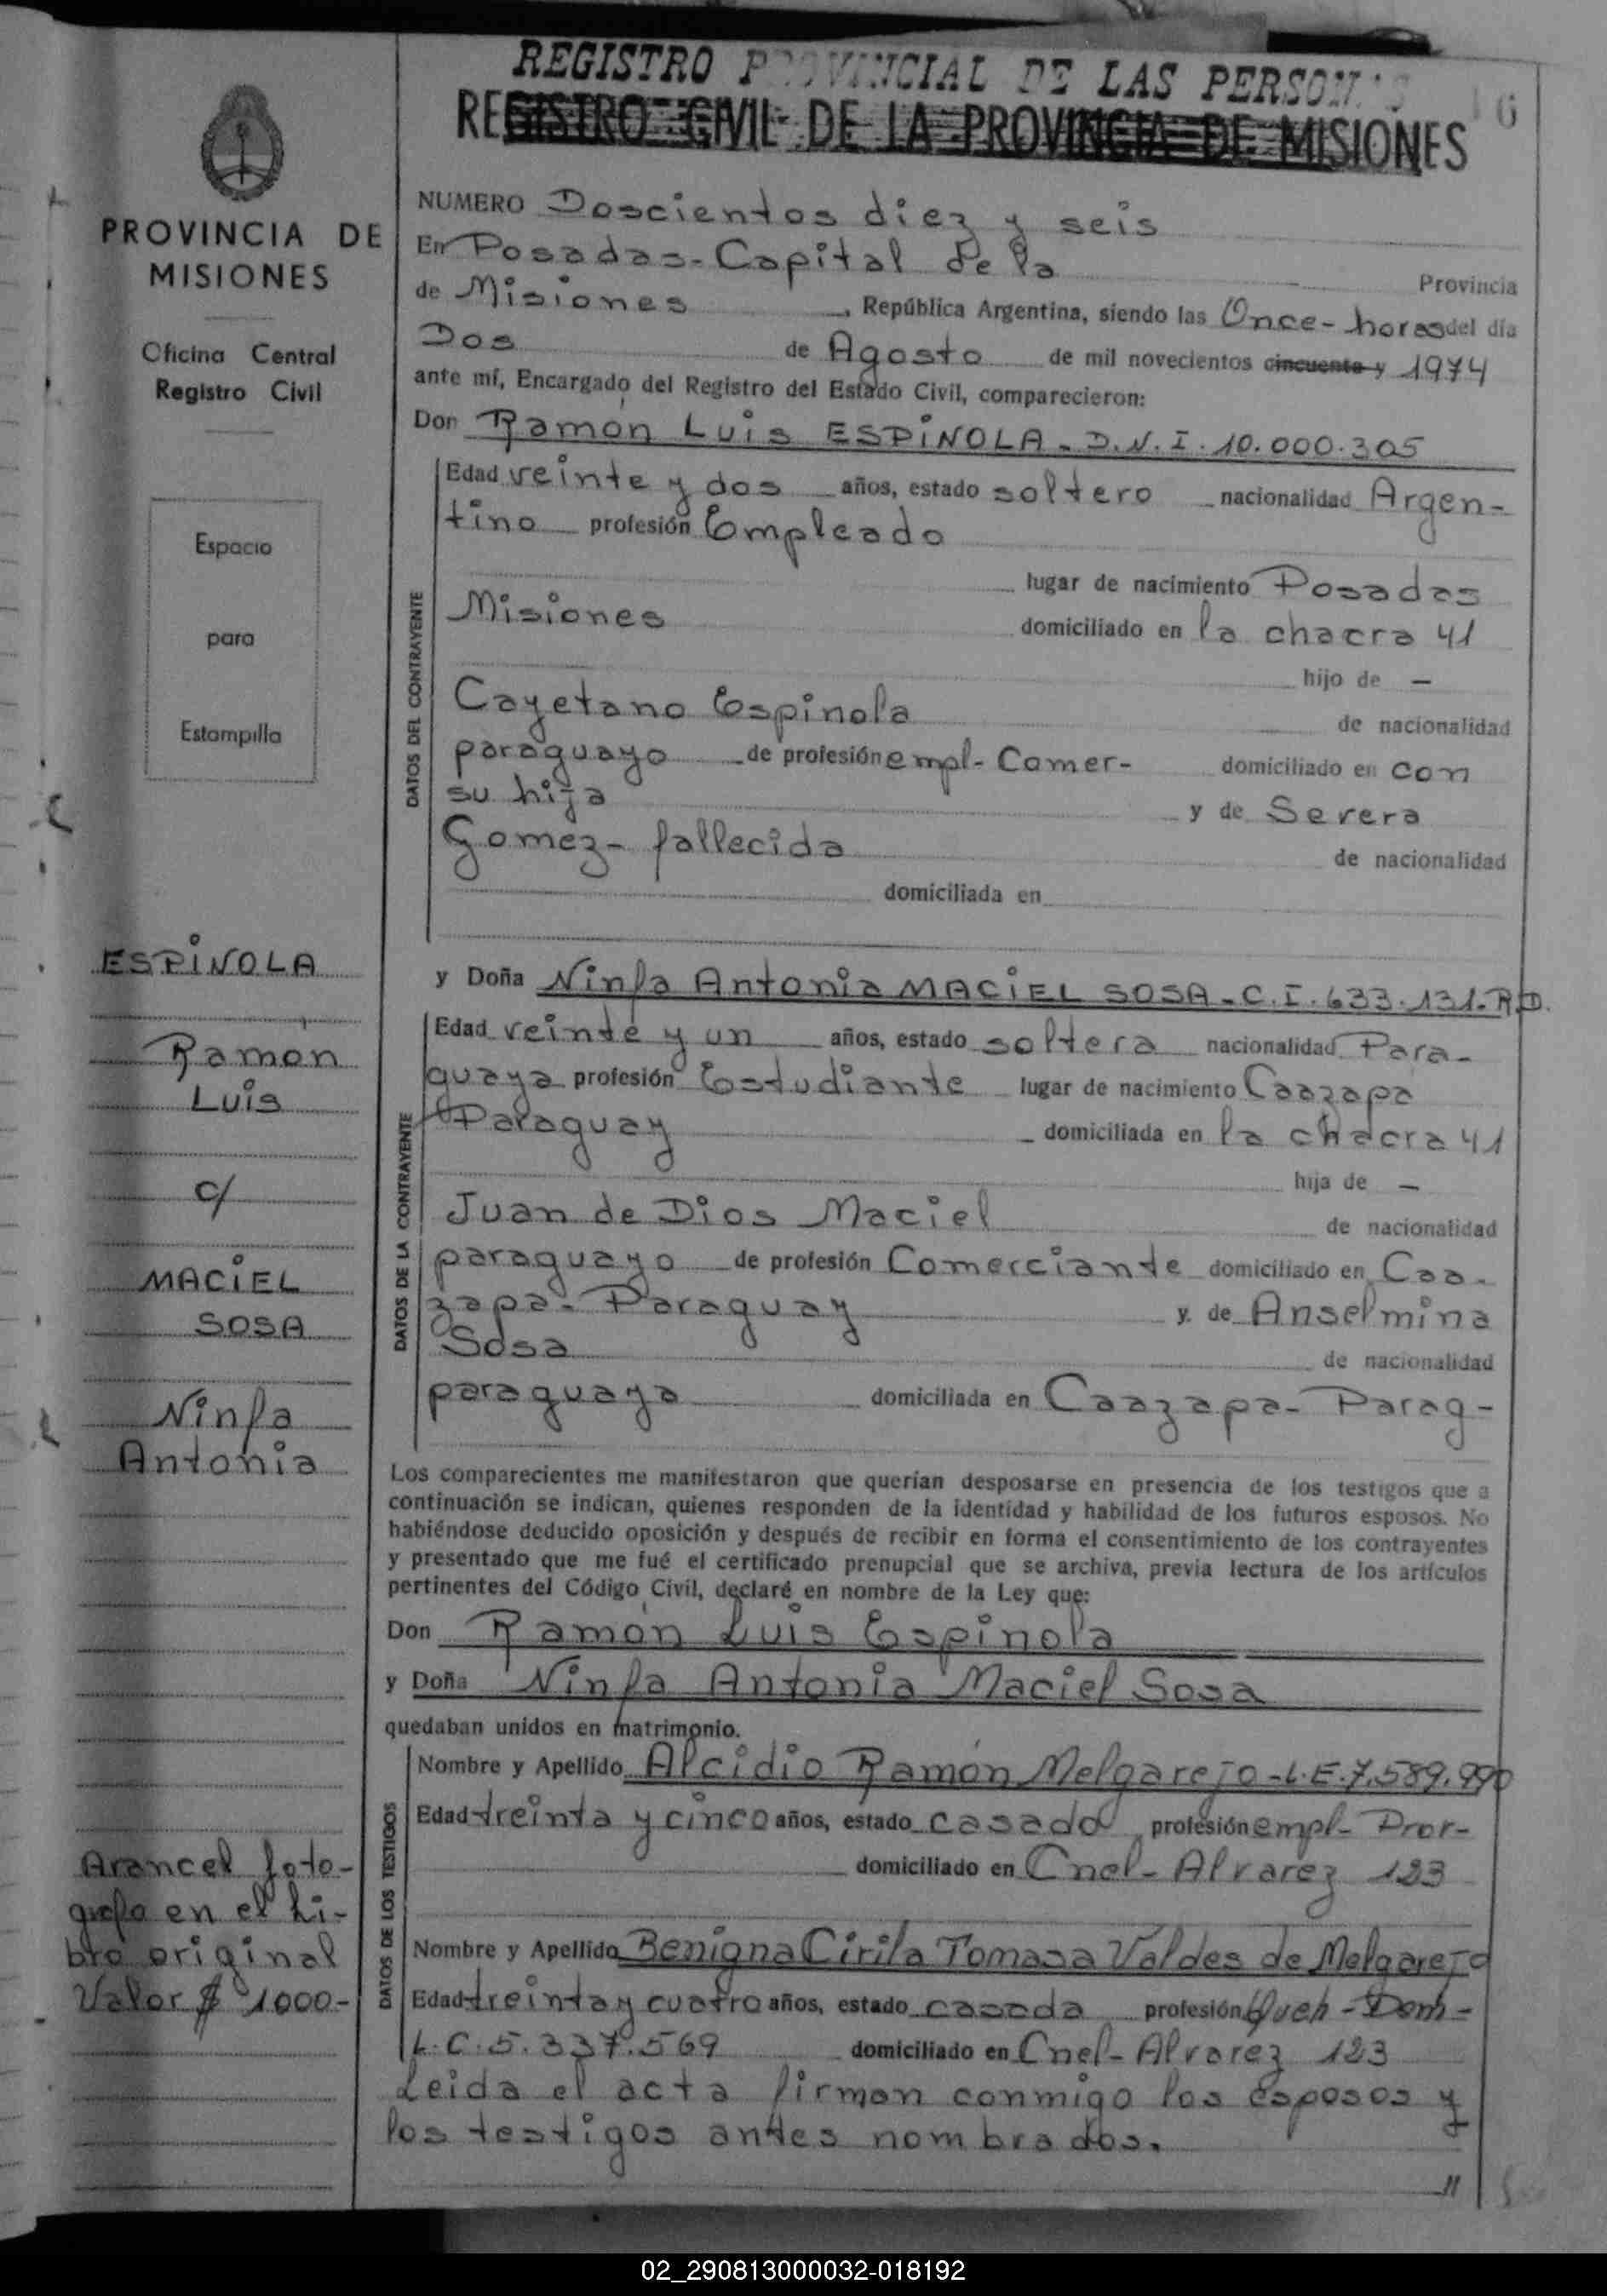 REGISTRO PROVINCIAL DE LAS PERSONAS
REGISTRO CIVIL DE LA PROVINCIA DE MISIONES
PROVINCIA DE
MISIONES
Oficina Central
Registro Civil
Espacio
para
Estampilla
ESPINOLA
Ramon
Luis
c/
MACIEL
SOSA
Ninfa
Antonia
Arancel foto-
grafo en el Li-
bro original
Valor $ 1000-
NUMERO Doscientos diez y seis
En Posadas-Capital de la Provincia
de Misiones, República Argentina, siendo las Once-horas del día
Dos de Agosto de mil novecientos cincuenta y 1974
ante mí, Encargado del Registro del Estado Civil, comparecieron:
Don Ramón Luis ESPINOLA-D.N.I.10.000.305
DATOS DEL CONTRAYENTE
Edad veinte y dos años, estado soltero nacionalidad Argen-
tino profesión Empleado
lugar de nacimiento Posadas
Misiones domiciliado en la chacra 41
hijo de -
Cayetano Espinola de nacionalidad
paraguayo de profesión empl-Comer- domiciliado en con
su hija y de Severa
Gomez-fallecida de nacionalidad
domiciliada en
y Doña Ninfa Antonia MACIEL SOSA-C.I.633.131-R.D.
DATOS DE LA CONTRAYENTE
Edad veinte y un años, estado soltera nacionalidad Para-
guaya profesión Estudiante lugar de nacimiento Caazapa
Paraguay domiciliada en la chacra 41
hija de -
Juan de Dios Maciel de nacionalidad
paraguayo de profesión Comerciante domiciliado en Caa-
zapa-Paraguay y de Anselmina
Sosa de nacionalidad
paraguaya domiciliada en Caazapa-Parag-
Los comparecientes me manifestaron que querían desposarse en presencia de los testigos que a
continuación se indican, quienes responden de la identidad y habilidad de los futuros esposos. No
habiéndose deducido oposición y después de recibir en forma el consentimiento de los contrayentes
y presentado que me fué el certificado prenupcial que se archiva, previa lectura de los artículos
pertinentes del Código Civil, declaré en nombre de la Ley que:
Don Ramón Luis Espinola
y Doña Ninfa Antonia Maciel Sosa
quedaban unidos en matrimonio.
DATOS DE LOS TESTIGOS
Nombre y Apellido Alcidio Ramón Melgarejo-L.E.7.589.990
Edad treinta y cinco años, estado casado profesión empl-Pror-
domiciliado en Cnel-Alvarez 123
Nombre y Apellido Benigna Cirila Tomasa Valdes de Melgarejo
Edad treinta y cuatro años, estado casada profesión Queh-Dom-
L.C.5.337.569 domiciliado en Cnel-Alvarez 123
Leida el acta firman conmigo los esposos y
los testigos antes nombrados.
//
02_290813000032-018192